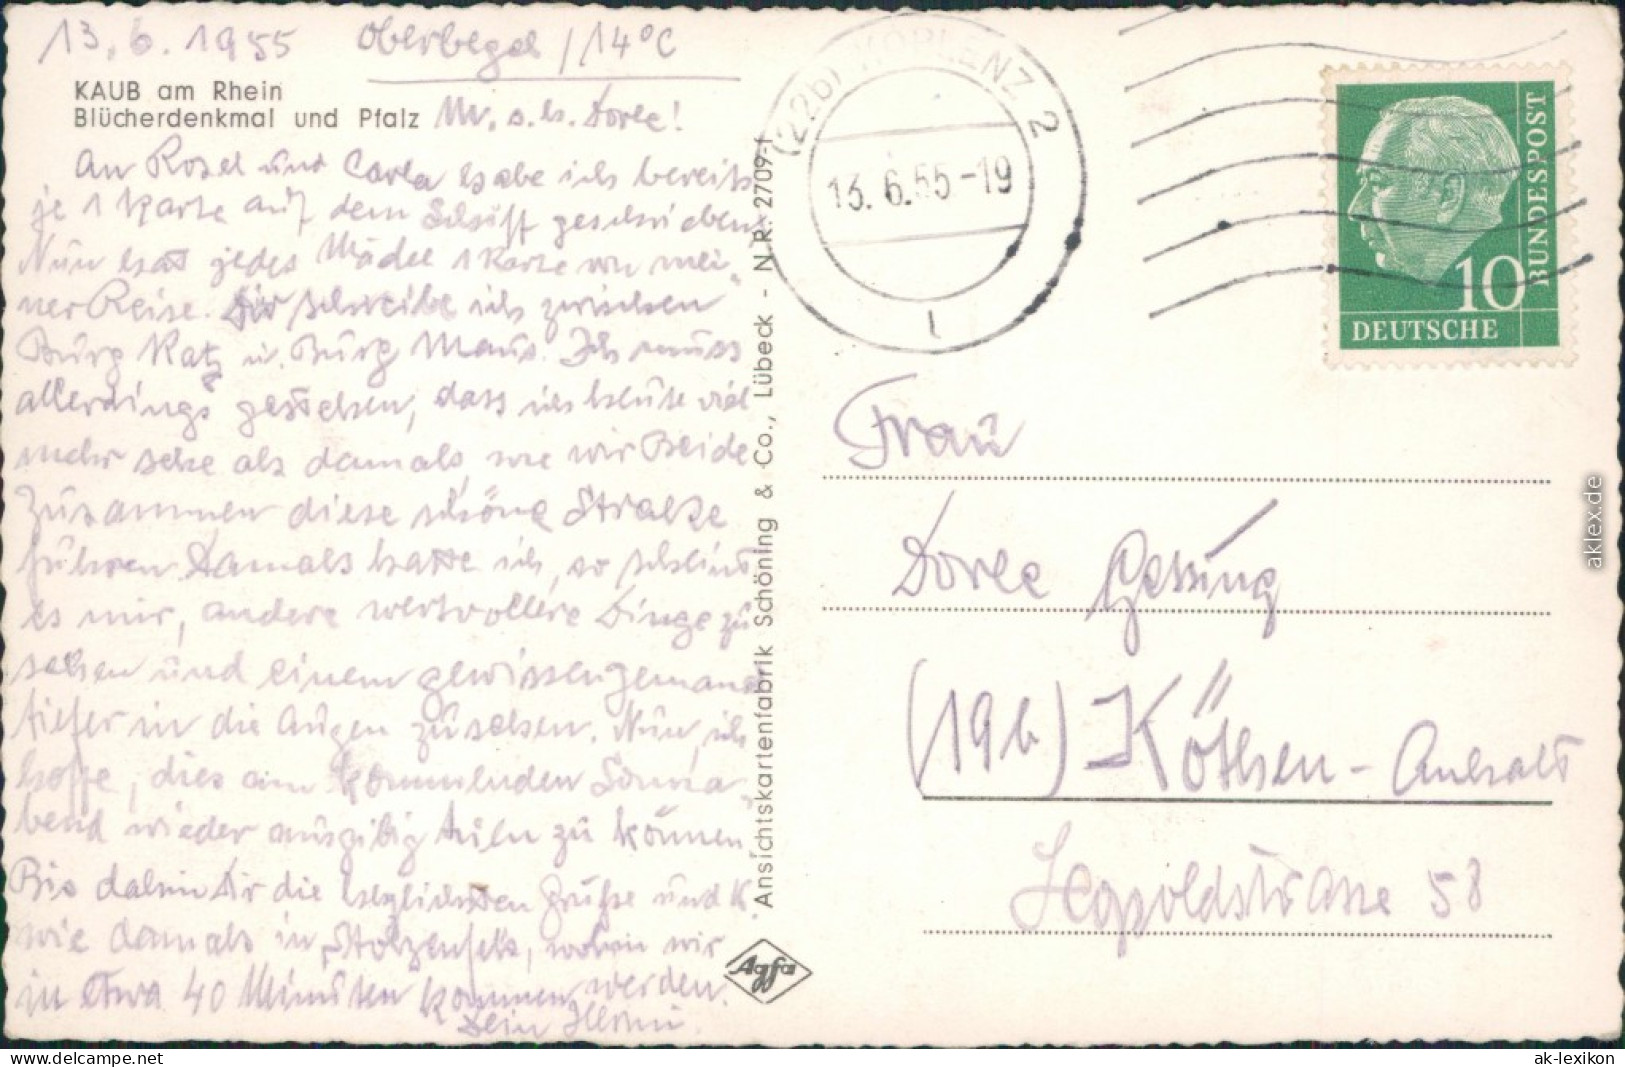 13. 6. 1955 Oberwesel / 14°C
KAUB am Rhein
Blücherdenkmal und Pfalz
M. s. ls. Dorle!
An Rosel und Carla habe ich bereits
je 1 Karte auf dem Schiff geschrieben.
Nun hat jedes Mädel 1 Karte von mei-
ner Reise. Dir schreibe ich zwischen
Burg Katz u. Burg Maus. Ich muss
allerdings gestehen, dass ich heute viel
mehr sehe als damals, wo wir Beide
zusammen diese schöne Strasse
fuhren. Damals hatte ich, so scheint
es mir, andere wertvollere Dinge zu
sehen und einem gewissen Jemand
tiefer in die Augen zu sehen. Nun, ich
hoffe, dies am kommenden Sonna-
bend wieder ausgibig tun zu können
Bis dahin Dir die herzlichsten Grüsse und K.
wie damals in Stolzenfels, wohin wir
in etwa 40 Minuten kommen werden.
Dein
Ansichtskartenfabrik Schöning & Co., Lübeck - N.R. 2709-f
Agfa
(22b) KOBLENZ 2
13. 6. 55 -19
l
10
DEUTSCHE
BUNDESPOST
Frau
Dorle Gessing
(19b) Köthen - Anhalt
Leopoldstrasse 58
aklex.de
www.delcampe.net
ak-lexikon